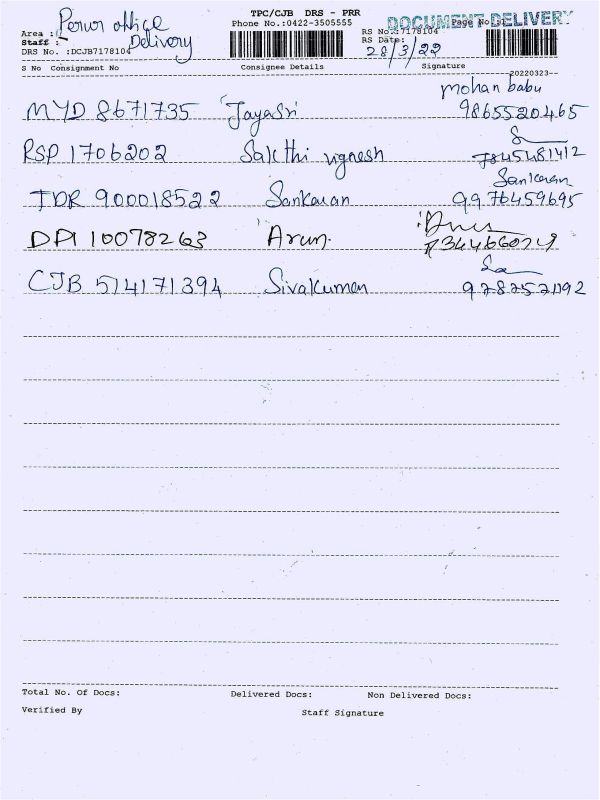 TPC/CJB DRS - PRR
DOCUMENT DELIVERY
Area : Perur office
Phone No.:0422-3505555
RS No.:7178104
Page No
Staff : Delivery
RS Date: 28/3/22
DRS No. :DCJB7178104
S No Consignment No Consignee Details Signature
20220323
mohan babu
MYD 8671735 Jayasri 9865520465
RSP 1706202 Sakthi vignesh 7845481412
Sankaran
TDR 900018522 Sankaran 9976459695
DPI 10078263 Arun.
CJB 514171394 Sivakumar
Total No. Of Docs: Delivered Docs: Non Delivered Docs:
Verified By Staff Signature